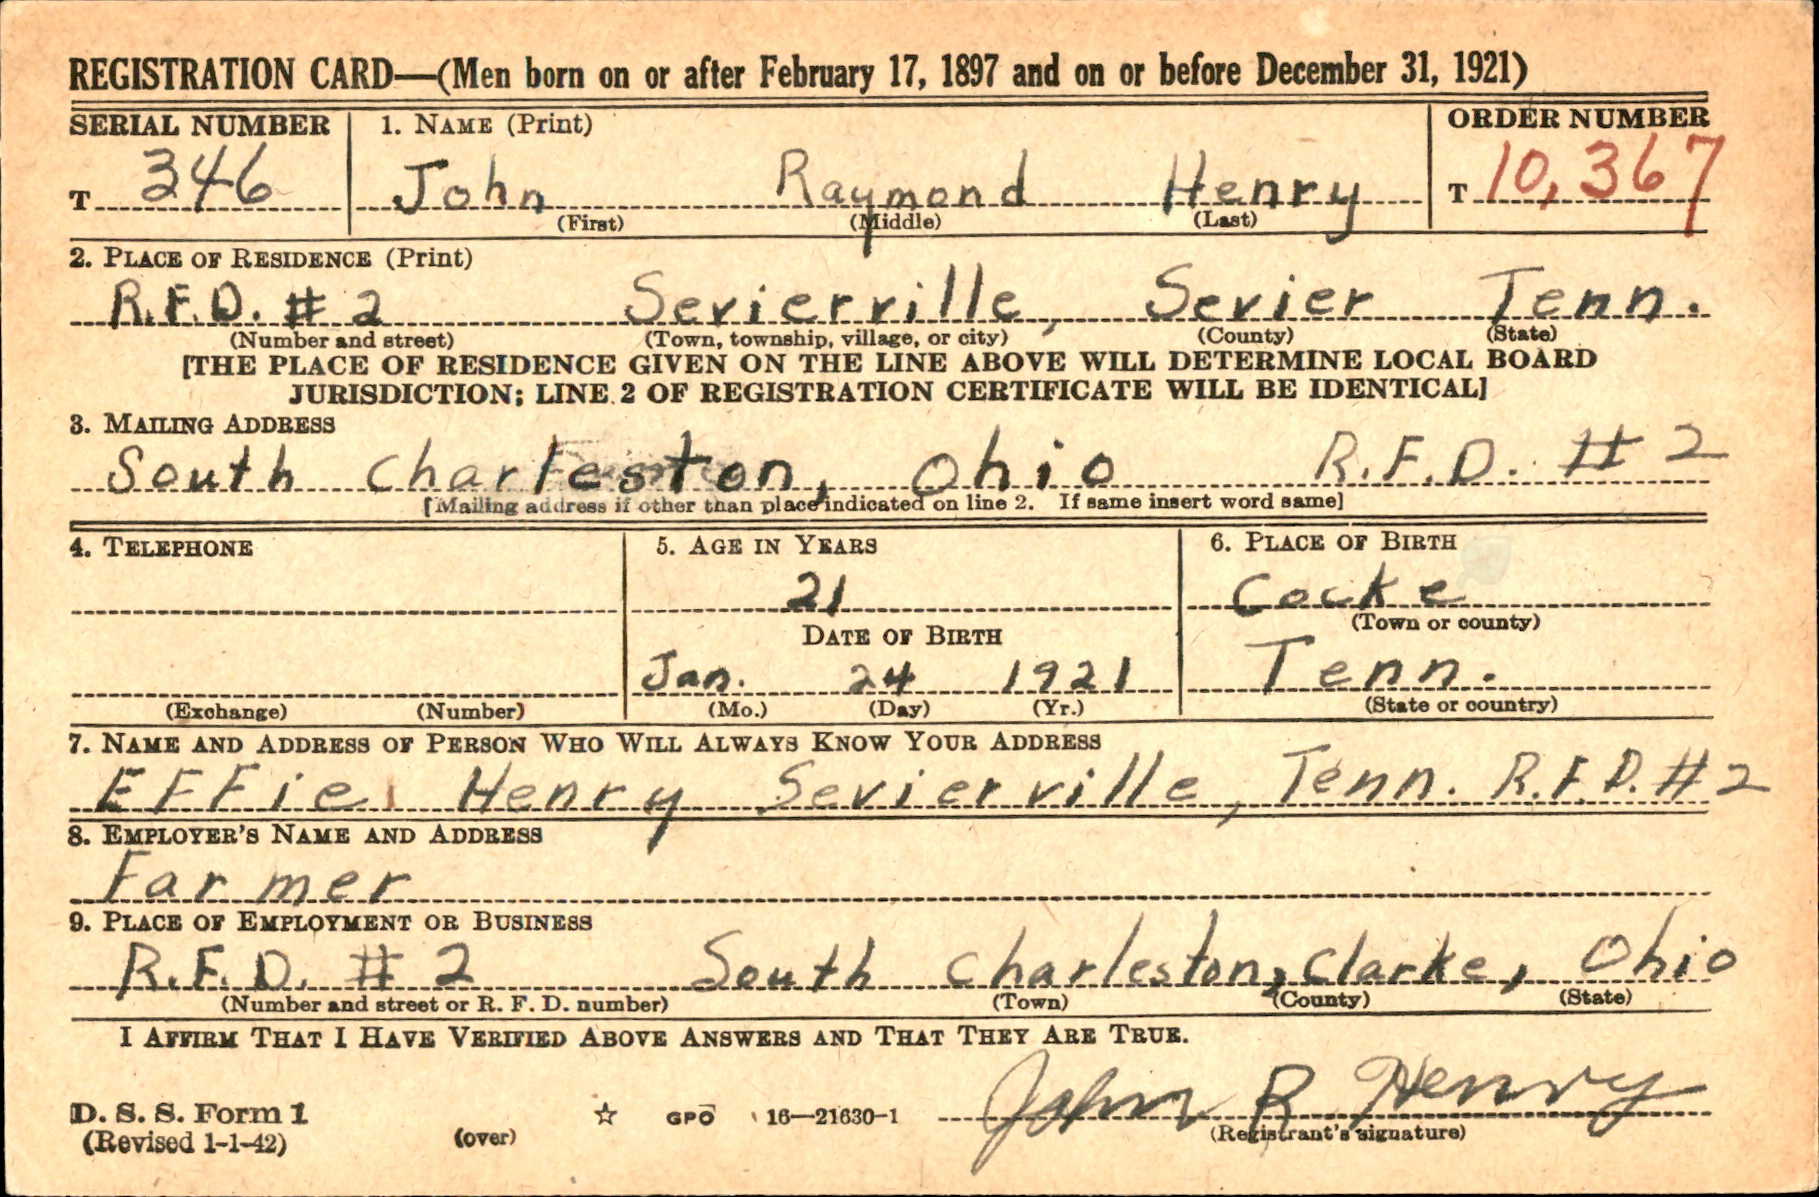 REGISTRATION CARD—(Men born on or after February 17, 1897 and on or before December 31, 1921)
SERIAL NUMBER 1. NAME (Print) ORDER NUMBER
T 346 John Raymond Henry T 10,367
(First) (Middle) (Last)
2. PLACE OF RESIDENCE (Print)
R.F.D. # 2 Sevierville, Sevier Tenn.
(Number and street) (Town, township, village, or city) (County) (State)
[THE PLACE OF RESIDENCE GIVEN ON THE LINE ABOVE WILL DETERMINE LOCAL BOARD
JURISDICTION; LINE 2 OF REGISTRATION CERTIFICATE WILL BE IDENTICAL]
3. MAILING ADDRESS
South Charleston, Ohio R.F.D. # 2
[Mailing address if other than place indicated on line 2. If same insert word same]
4. TELEPHONE 5. AGE IN YEARS 6. PLACE OF BIRTH
21 Cocke
(Town or county)
DATE OF BIRTH
Jan. 24 1921 Tenn.
(Exchange) (Number) (Mo.) (Day) (Yr.) (State or country)
7. NAME AND ADDRESS OF PERSON WHO WILL ALWAYS KNOW YOUR ADDRESS
EFFie Henry Sevierville, Tenn. R.F.D. # 2
8. EMPLOYER'S NAME AND ADDRESS
Farmer
9. PLACE OF EMPLOYMENT OR BUSINESS
R.F.D. # 2 South Charleston, Clarke, Ohio
(Number and street or R. F. D. number) (Town) (County) (State)
I AFFIRM THAT I HAVE VERIFIED ABOVE ANSWERS AND THAT THEY ARE TRUE.
John R Henry
D. S. S. Form 1 ☆ GPO 16—21630-1
(Revised 1-1-42) (over) (Registrant's signature)